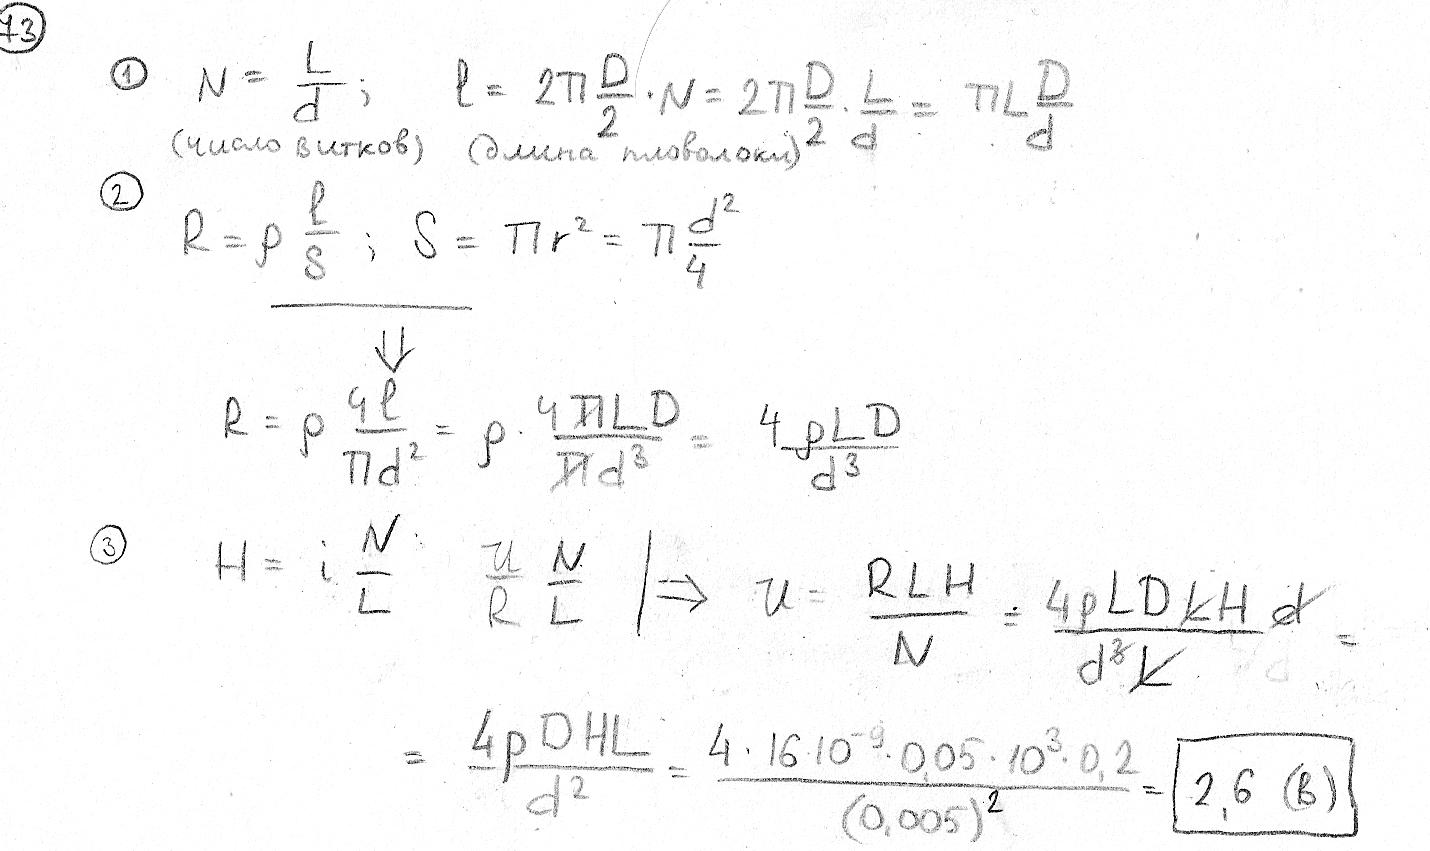 73
① N = L/d; l = 2π D/2 · N = 2π D/2 · L/d = πL D/d
(число витков) (длина пловолоки)
②
R = ρ l/S; S = πr² = π d²/4
⇓
R = ρ 4l/πd² = ρ · 4πLD/πd³ = 4ρLD/d³
③ H = i N/L u/R N/L | ⇒ u = RLH/N = 4ρLDLHd/d³L =
= 4ρDHL/d² = 4·16·10⁻⁹·0,05·10³·0,2/(0,005)² = 2,6 (В)